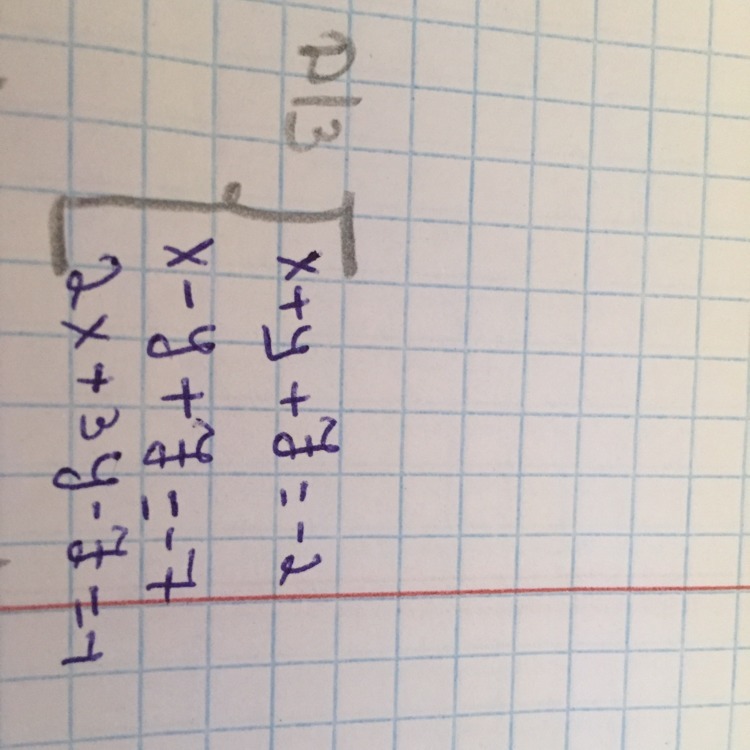 D/3
x+y+z=-2
x-y+z=-7
2x+3y-z=1